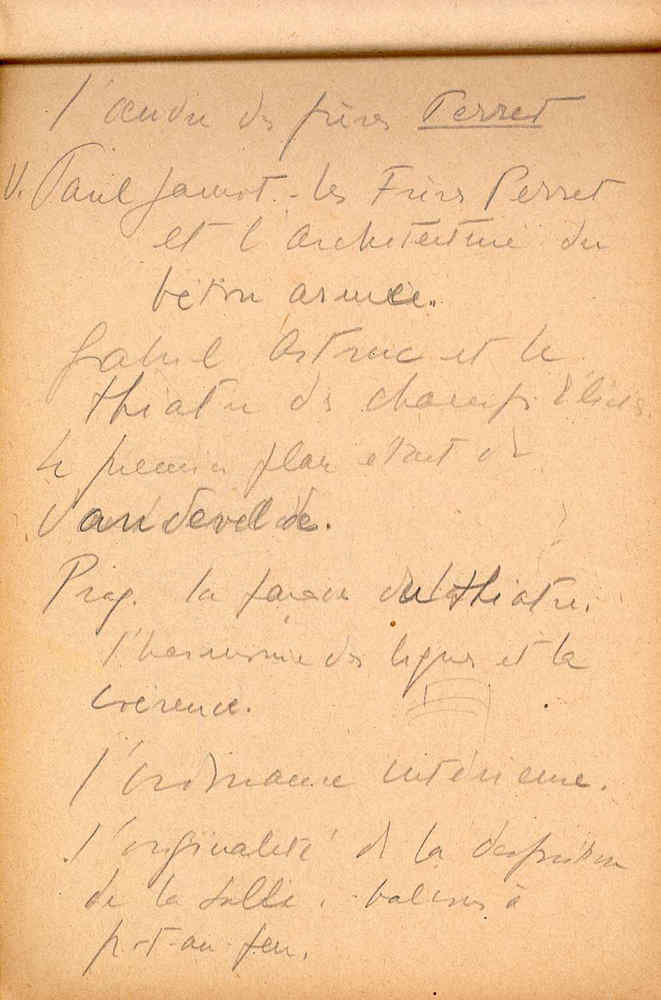 l'œuvre des frères Perret
V. Paul Jamot. - Les Frères Perret
et l'architecture du
béton armée.
Gabriel Astruc et le
théatre des champs Elisées.
Le premier plan était de
Vandevelde.
Proj. la façade du théatre.
l'harmonie des lignes et la
l'ordonnance intérieure.
l'originalité de la disposition
de la salle. balcons à
pot-au-feu.